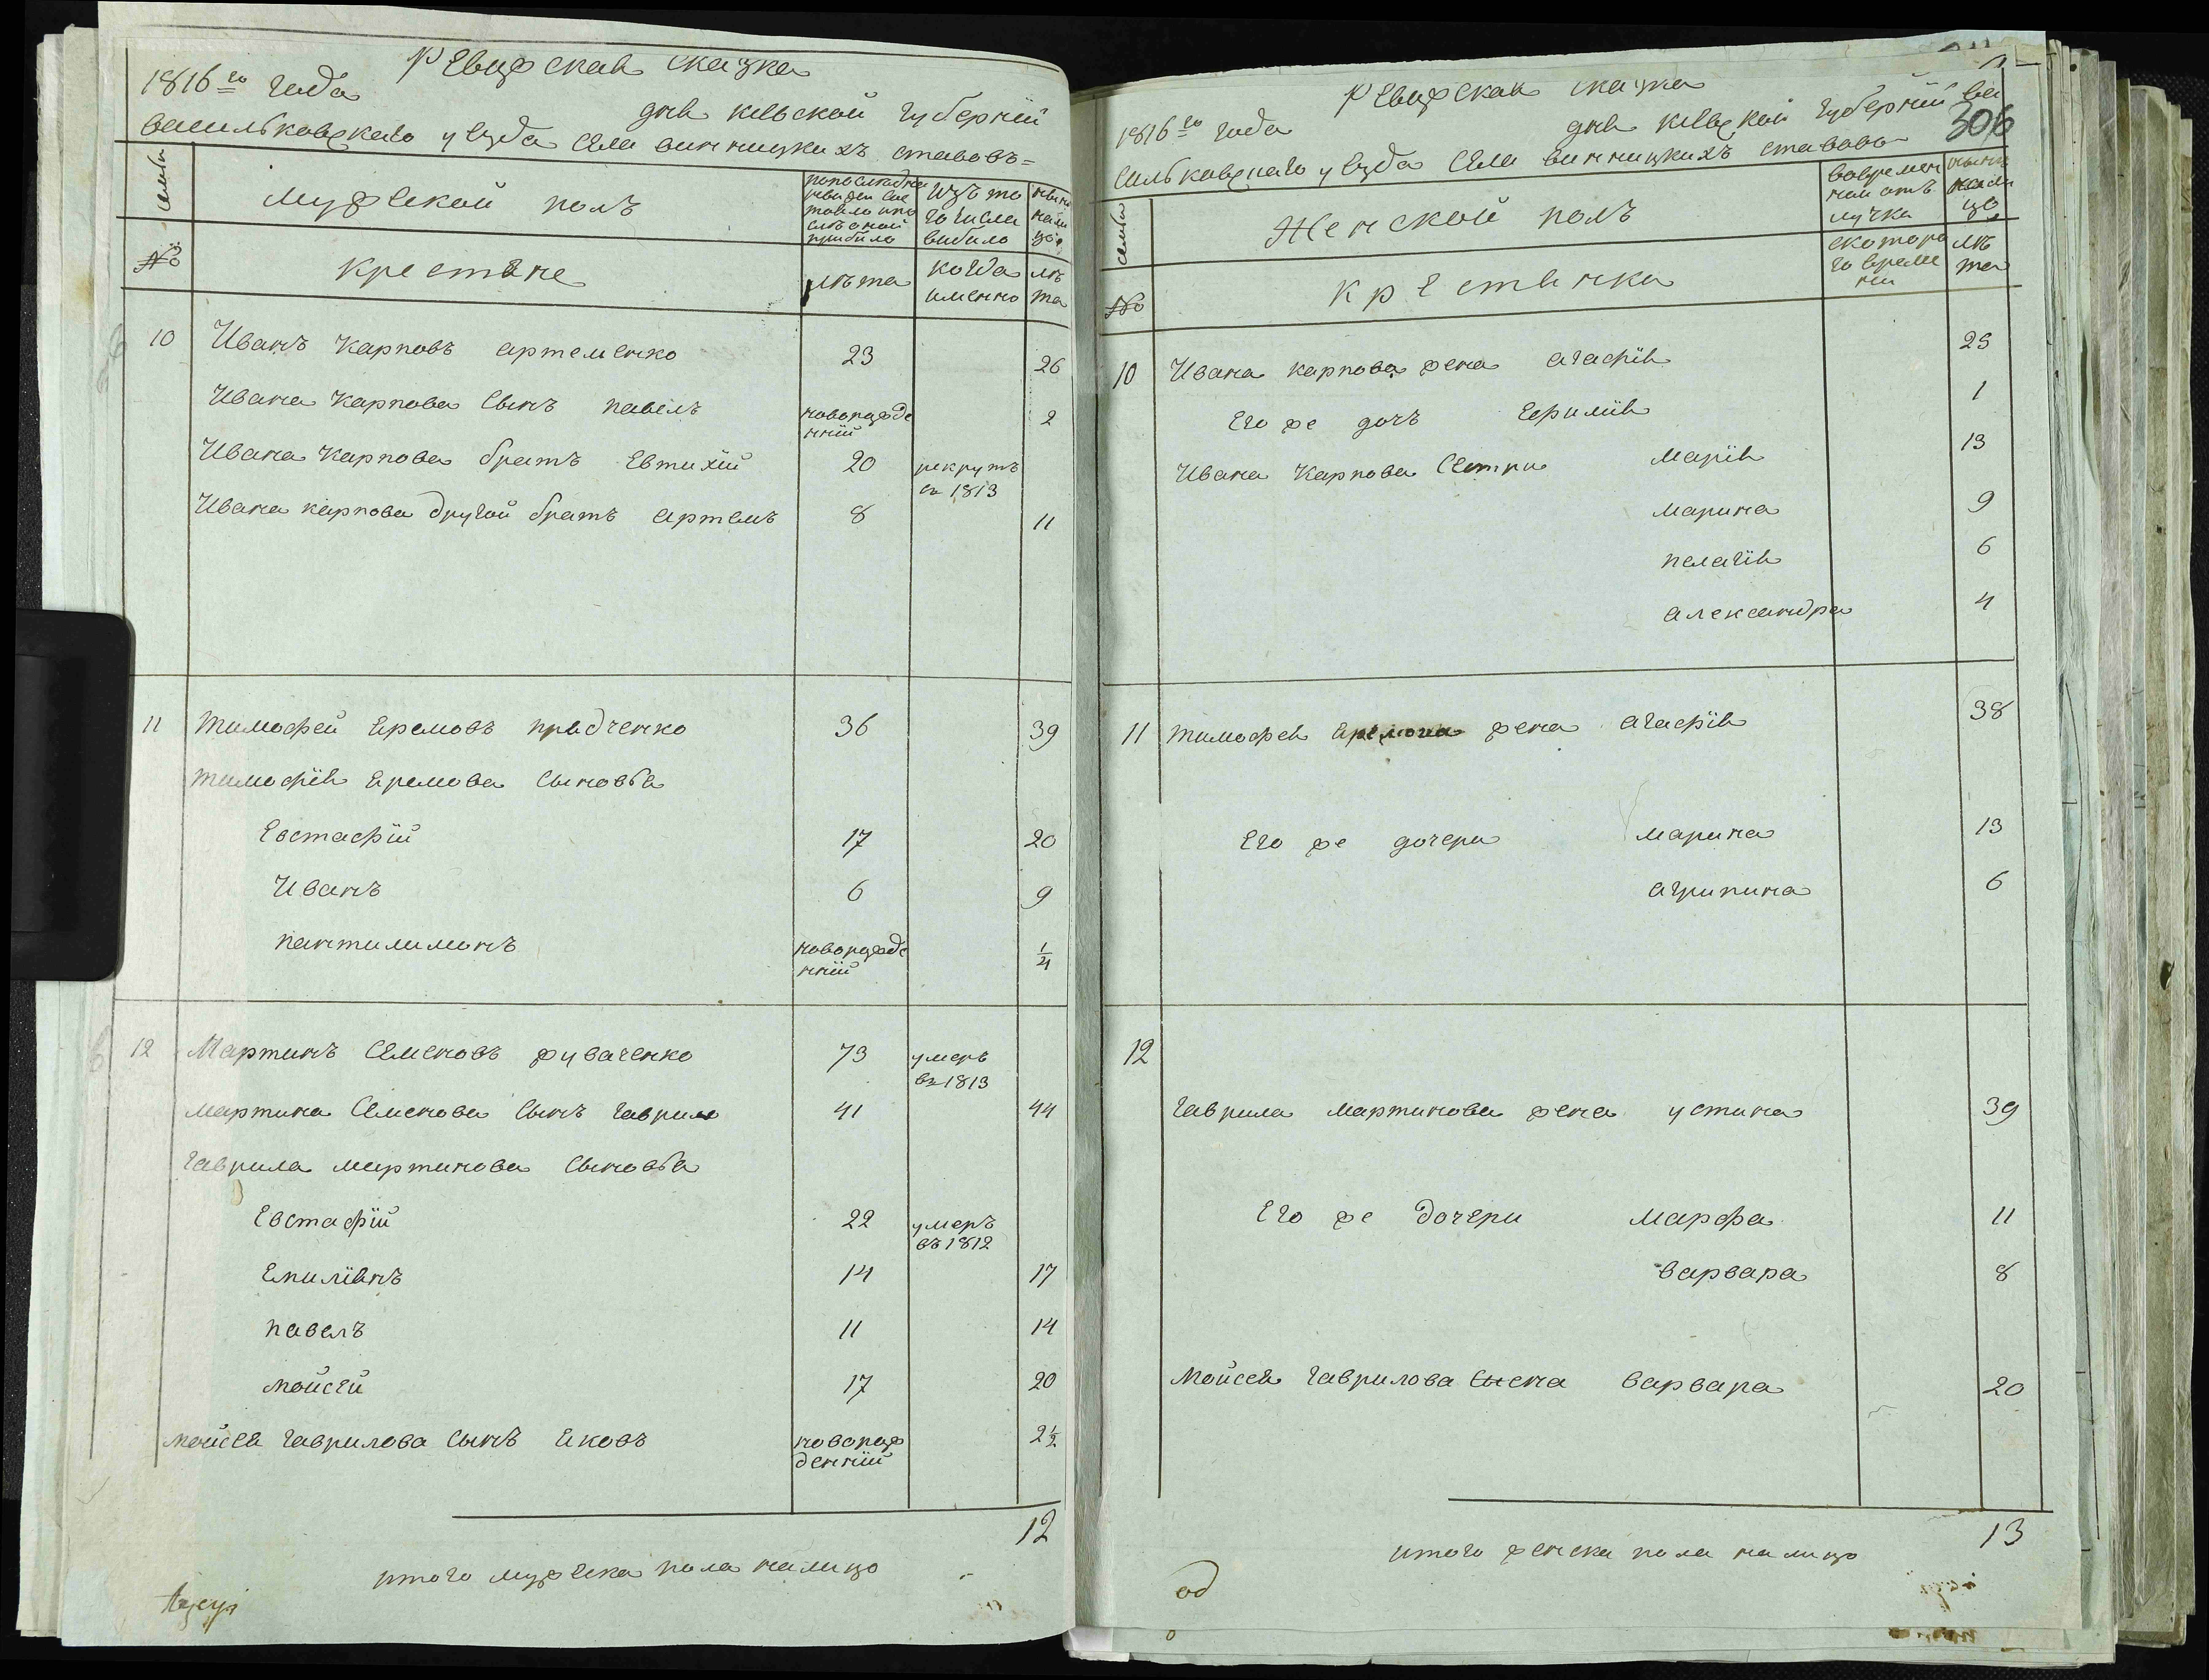 Ревизская сказка
1816го года
для киевской губернїи
васильковскаго уезда села винницкихъ ставовъ=
семьи
Мужеской полъ
по последней ревизїи состояло и после оной прибыло
изъ того числа выбыло
ныне на лицо
№
крестяне
лета
когда именно
лета
10 Иванъ карповъ артеменко 23 26
Ивана Карпова Сынъ павелъ новорожденнїй 2
Ивана Карпова братъ Евтихїй 20 рекрутъ въ 1813
Ивана карпова другой братъ артемъ 8 11
11 тимофей Еремовъ прядченко 36 39
тимофїя Еремова Сыновья
Евстафїй 17 20
Иванъ 6 9
пантилимонъ новорожденнїй 1/4
12 Мартинъ Семеновъ руваченко 73 умеръ въ 1813
мартина Семенова Сынъ гаврило 41 44
гаврила мартинова Сыновья
Евстафїй 22 умеръ въ 1812
Емилїянъ 14 17
павелъ 11 14
мойсей 17 20
мойсея гаврилова Сынъ яковъ новорожденнїй 2 1/2
12
итого мужеска пола на лицо
306
Ревизская сказка
1816го года
для киевской губернїи ва
сильковскаго уезда села винницкихъ ставовъ
семьи
Женской полъ
во временной отлучке
ныне на лицо
№
крестянки
с которого времени
лета
10 Ивана карпова жена агафїя 25
Его же дочъ Ефимїя 1
Ивана Карпова Сестри марїя 13
марина 9
пелагїя 6
александра 4
11 тимофея Еремова жена агафїя 38
Его же дочери марина 13
агрипина 6
12
гаврила мартинова жена устина 39
Его же дочери марфа 11
варвара 8
мойсея гаврилова жена варвара 20
13
итого женска пола на лицо